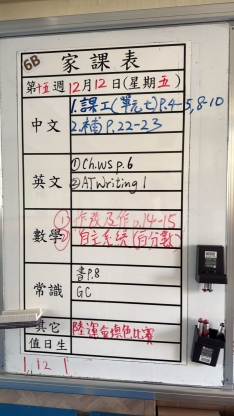 6B
家課表
第十五週 12月12日(星期五)
中文
1.課工(單元七)P.4-5,8-10
2.補P.22-23
英文
①Ch.WS p.6
②AT Writing 1
數學
① 作改及作p.14-15
② 自主系統(百分數)
常識
書P.8
GC
其它
陸運會填色比賽
值日生
1, 12 1